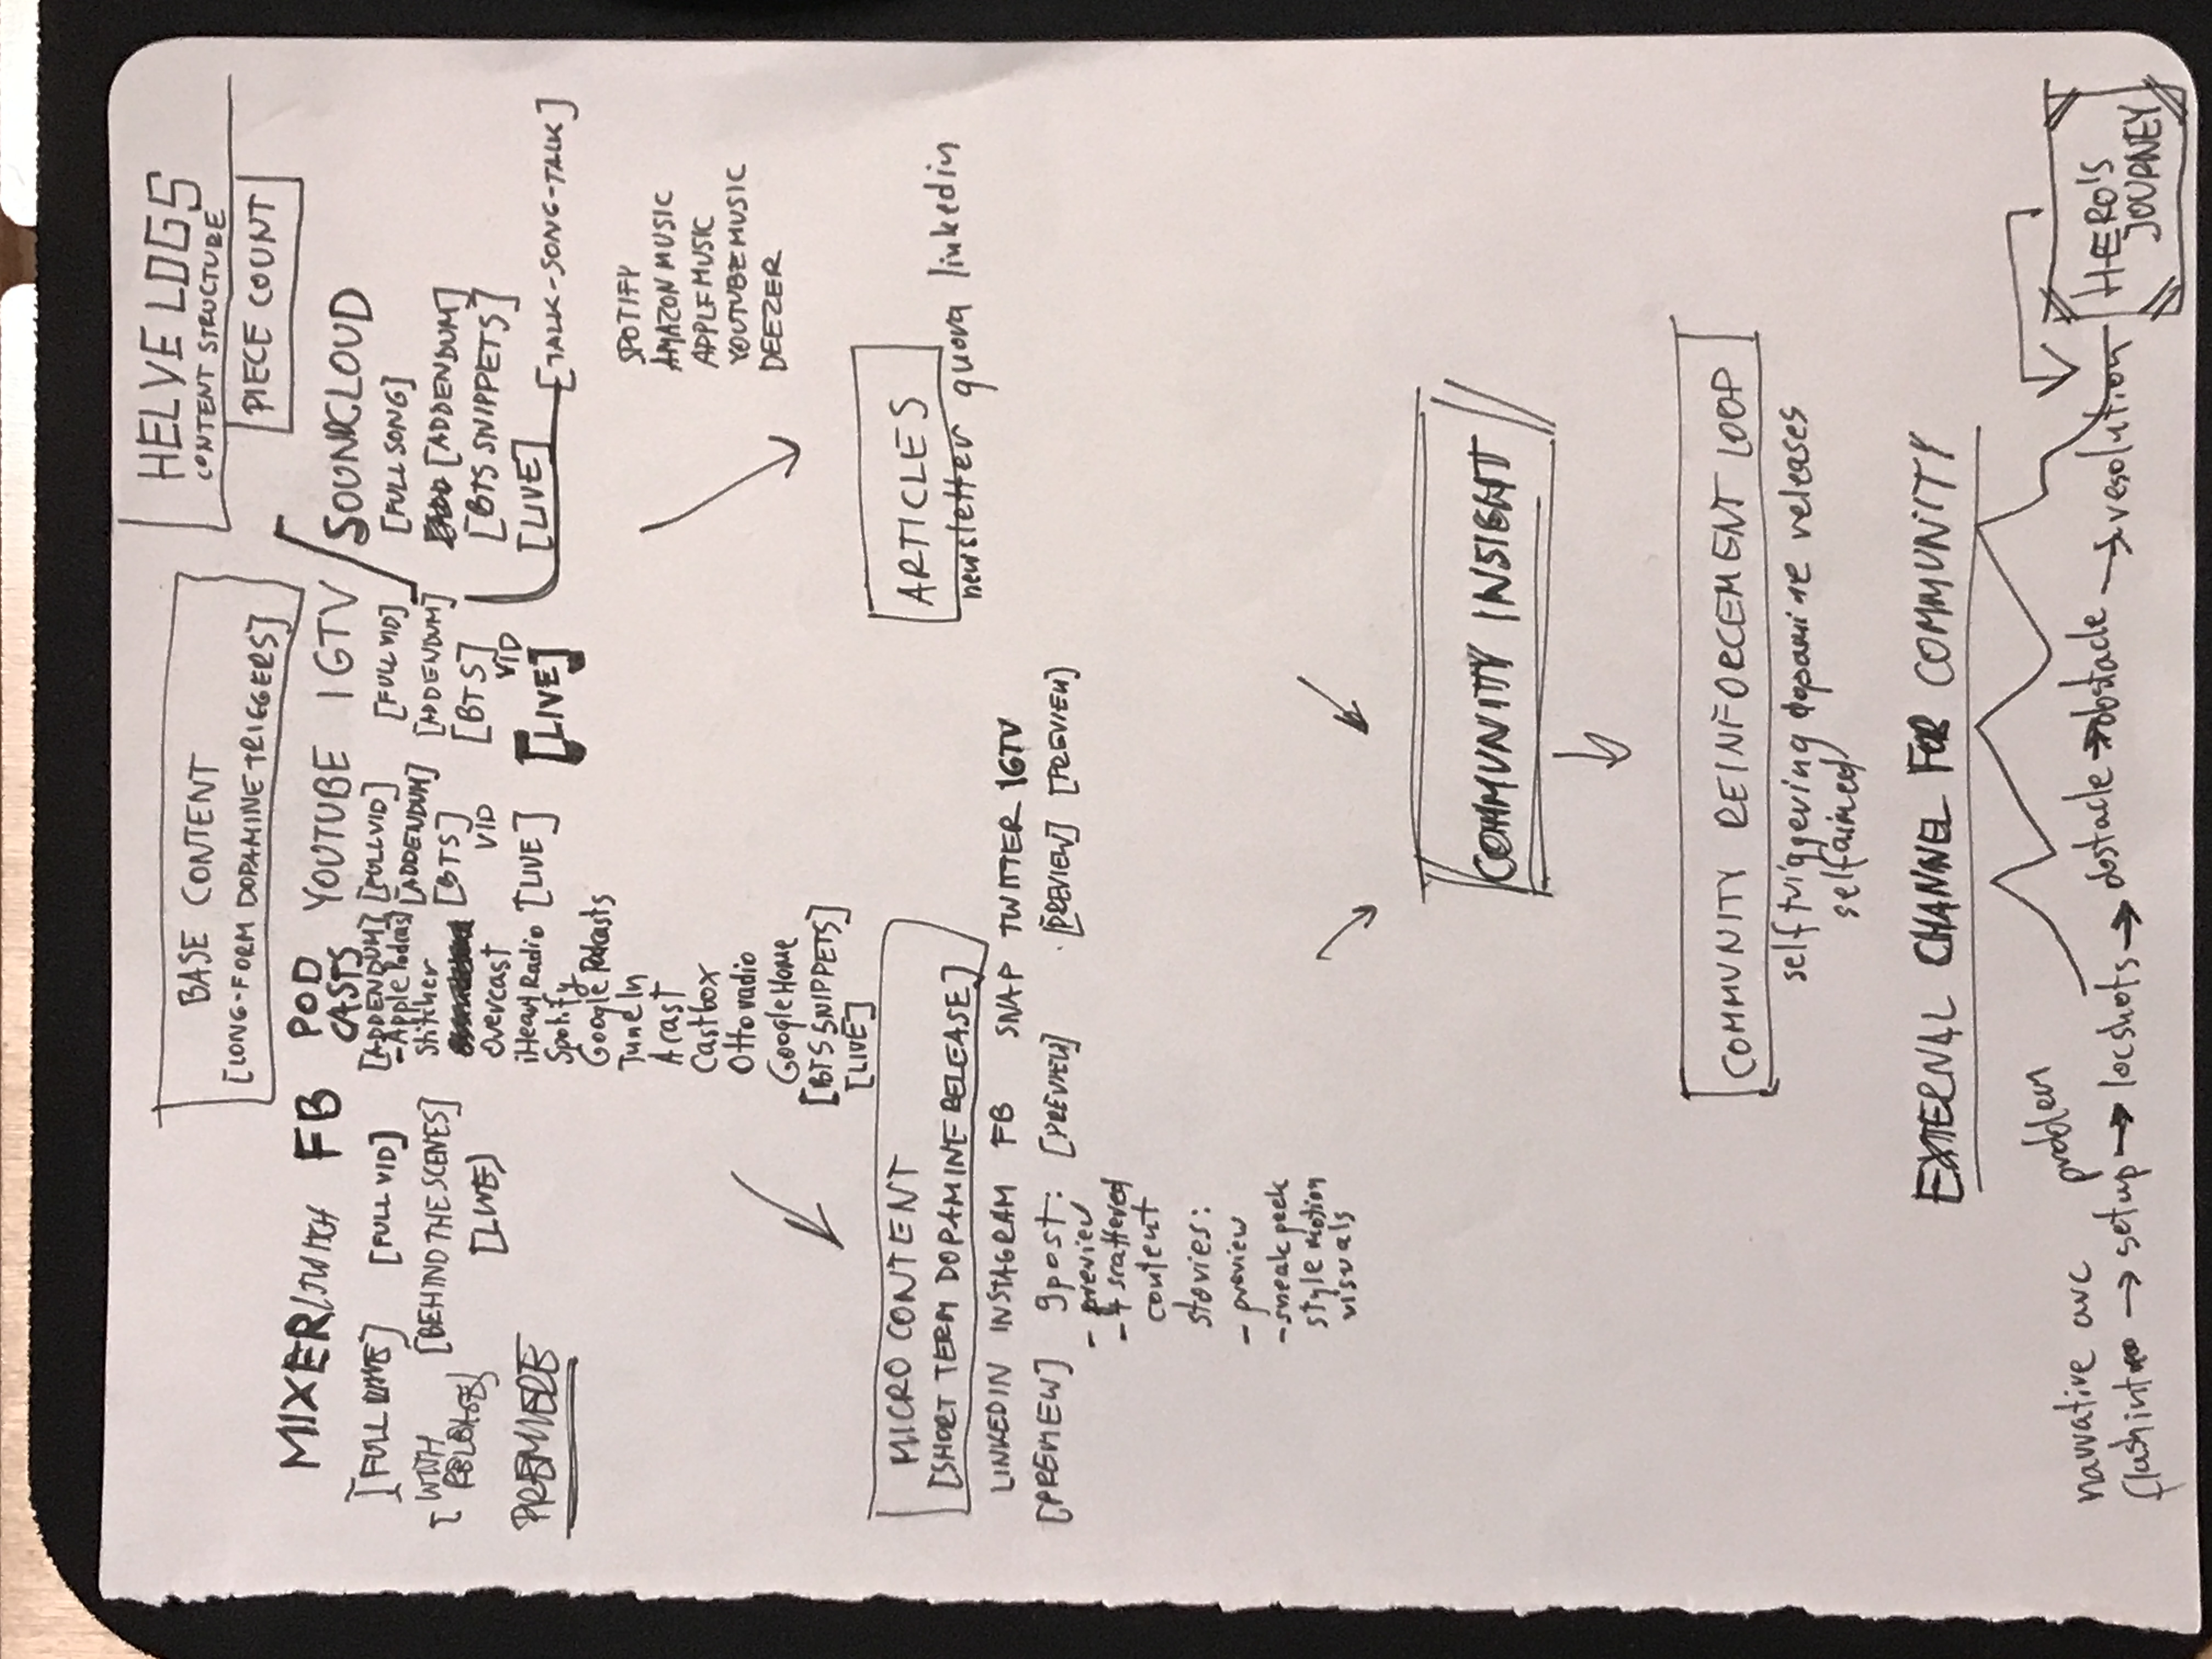 HELVE LOGS
CONTENT STRUCTURE
PIECE COUNT
BASE CONTENT
[LONG-FORM DOPAMINE TRIGGERS]
MIXER/TWITCH
[FULL LIVE]
[WITH
RELEASE]
PREMIERE
FB
[FULL VID]
[BEHIND THE SCENES]
[LIVE]
POD
CASTS
[ADDENDUM]
- Apple Podcast
Stitcher
Overcast
iHeart Radio
Spotify
Google Podcasts
TuneIn
Acast
Castbox
Ottoradio
Google Home
[BTS SNIPPETS]
[LIVE]
YOUTUBE
[FULL VID]
[ADDENDUM]
[BTS]
VID
[LIVE]
IGTV
[FULL VID]
[ADDENDUM]
[BTS]
VID
[LIVE]
SOUNDCLOUD
[FULL SONG]
[ADDENDUM]
[BTS SNIPPETS]
[LIVE]
[TALK-SONG-TALK]
SPOTIFY
AMAZON MUSIC
APPLE MUSIC
YOUTUBE MUSIC
DEEZER
MICRO CONTENT
[SHORT TERM DOPAMINE RELEASE]
LINKEDIN
[PREVIEW]
INSTAGRAM
9post:
- preview
- 4 scattered
content
stories:
- preview
- sneak peek
style motion
visuals
FB
[PREVIEW]
SNAP
TWITTER
[PREVIEW]
IGTV
[PREVIEW]
ARTICLES
newsletter quora linkedin
COMMUNITY INSIGHT
COMMUNITY REINFORCEMENT LOOP
self triggering dopamine releases
selfaimed
EXTERNAL CHANNEL FOR COMMUNITY
narrative arc
problem
flash intro → setup → locshots → obstacle → obstacle → resolution
HERO'S
JOURNEY